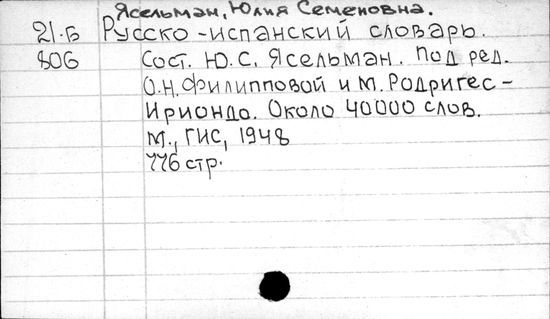 Ясельман, Юлия Семеновна.
21.Б Русско-испанский словарь.
806 Сост. Ю.С. Ясельман. Под ред.
О.Н. Филипповой и М. Родригес-
Ириондо. Около 40000 слов.
М., ГИС, 1948
776 стр.